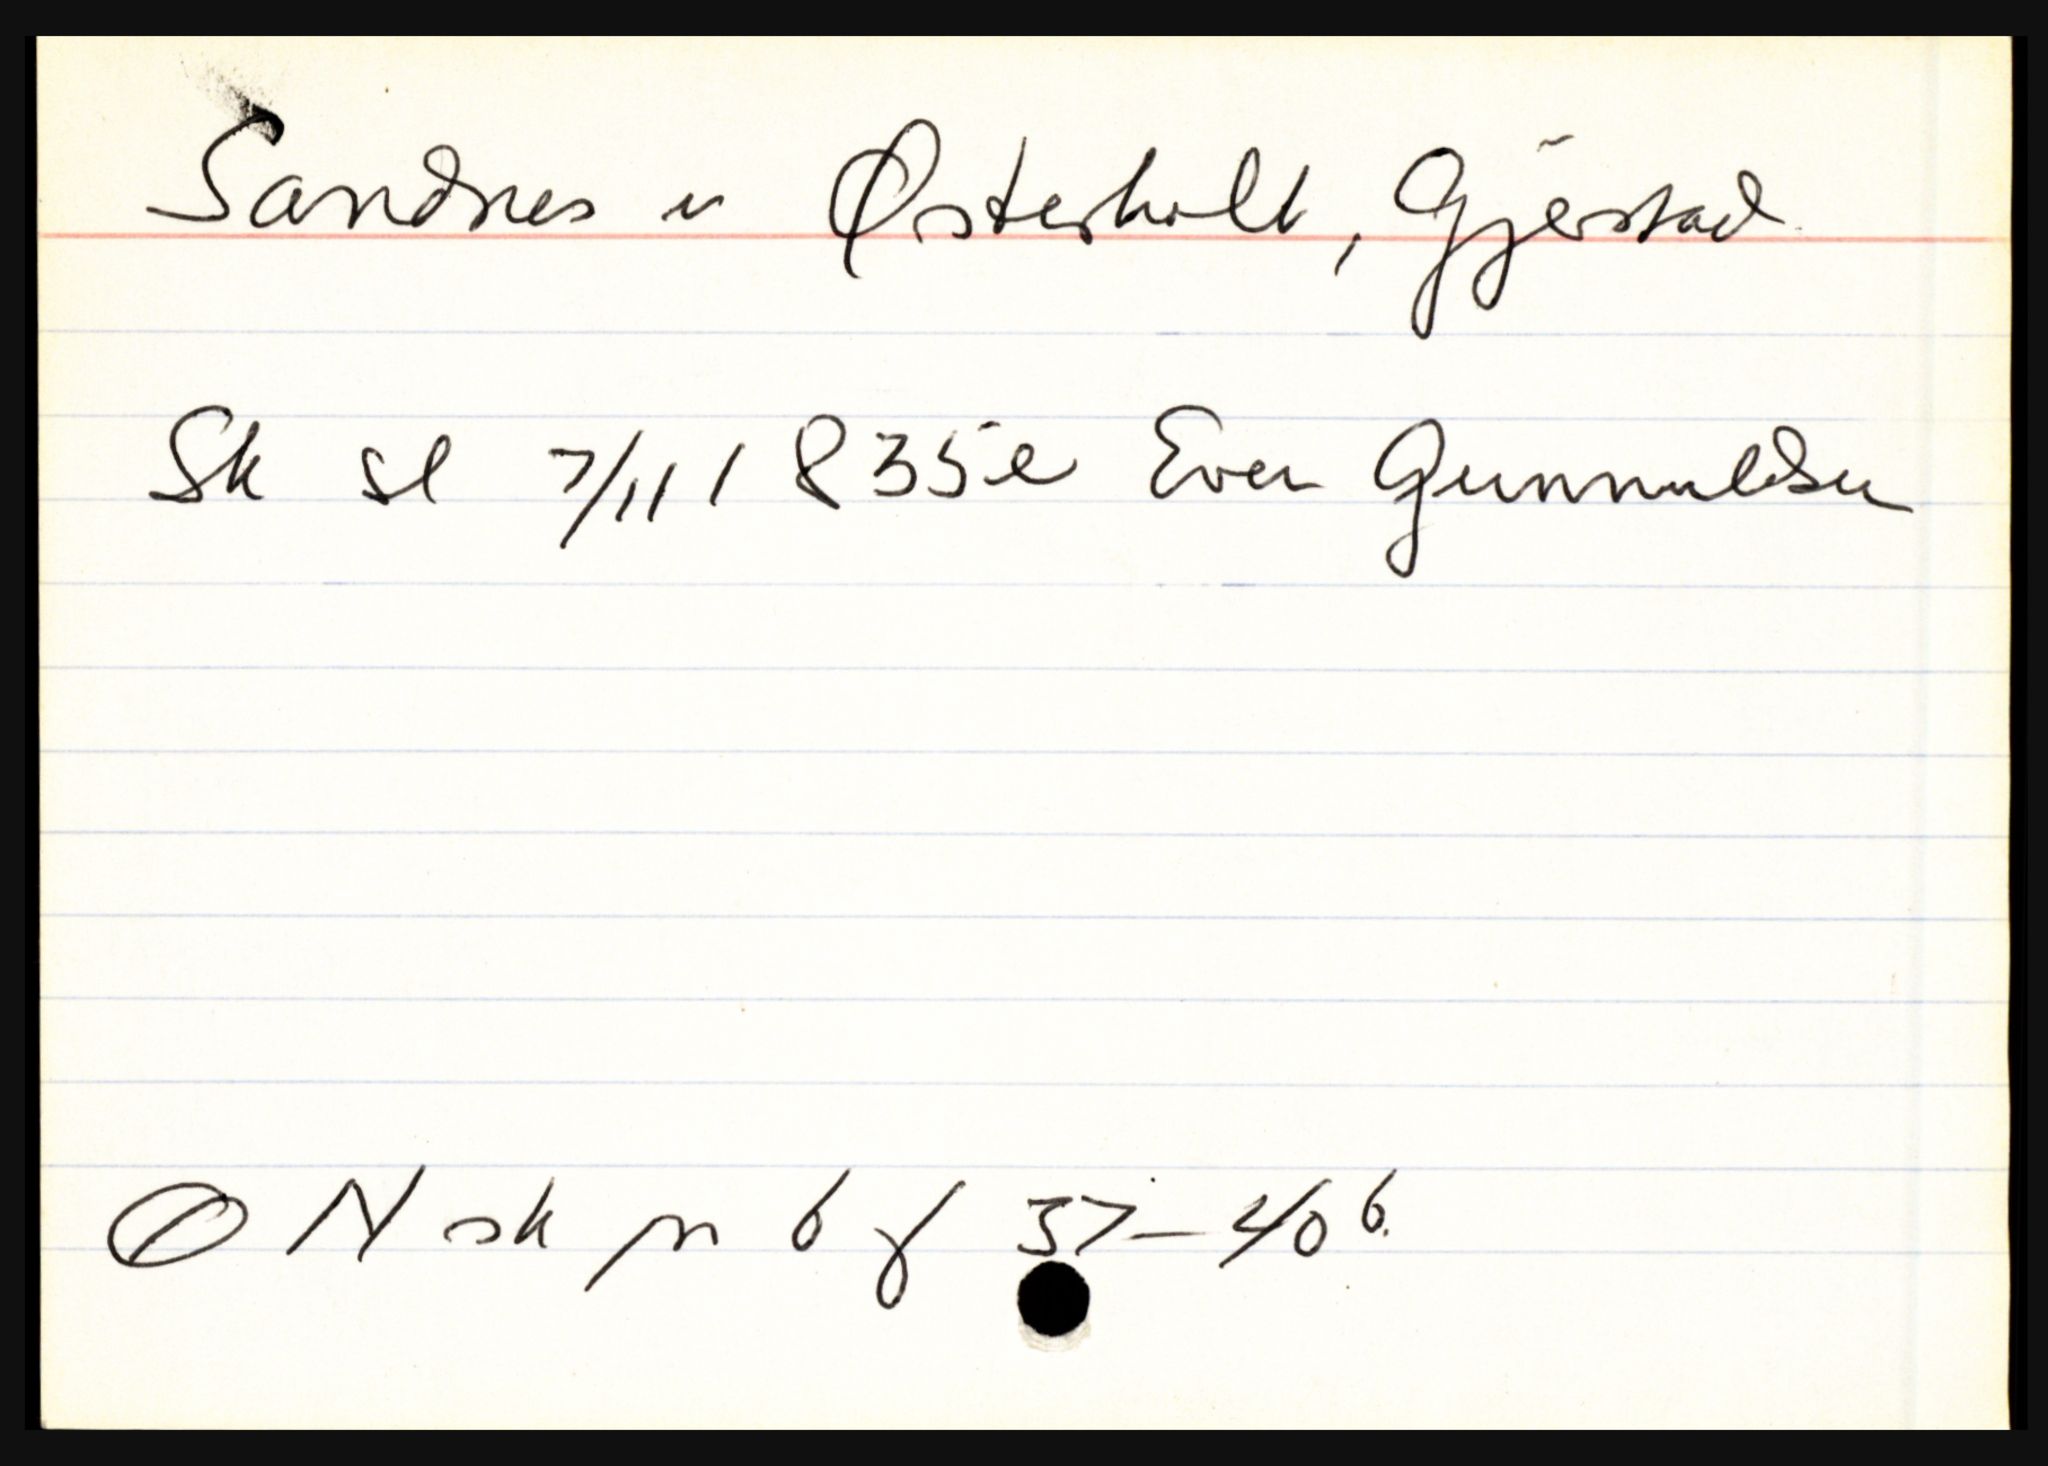 Sandnes u Østerholt, Gjerstad
Sk sl 7/11 1835 e Even Gunnuldsen
Ø N sk pr 6 f 37-40 b.